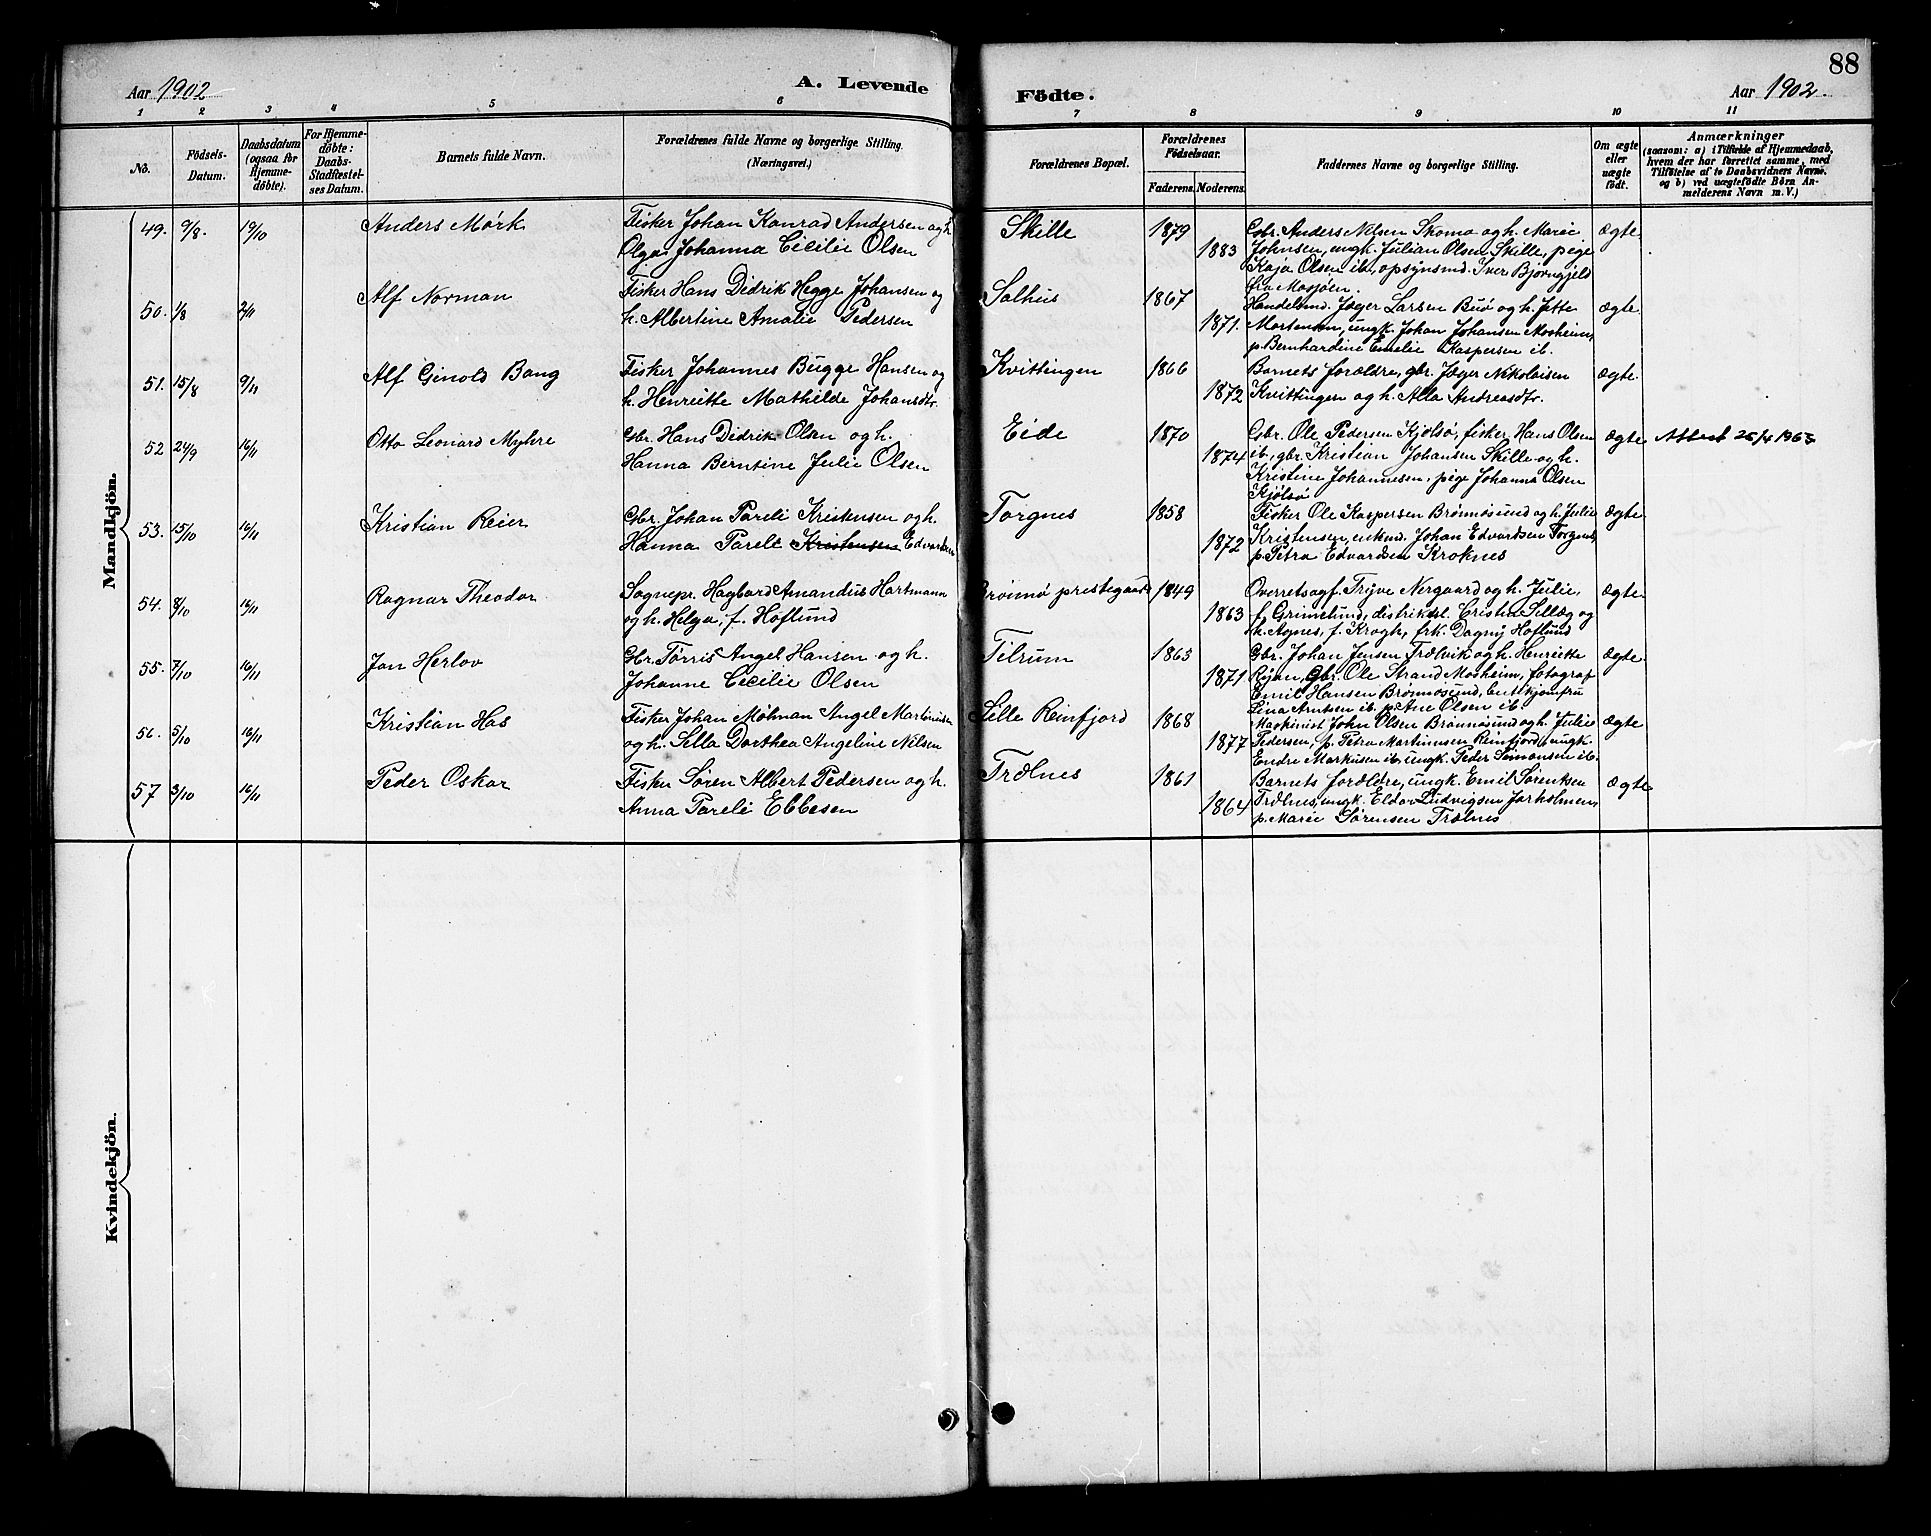 Aar 1902
A. Levende
Födte.
Aar 1902.
88
1 2 3 4 5 6 7 8 9 10 11
No.
Födsels-Datum.
Daabsdatum (ogsaa for Hjemme-döbte).
For Hjemme-döbte: Daabs-Stadfæstel-ses Datum.
Barnets fulde Navn.
Forældrenes fulde Navne og borgerlige Stilling. (Næringsvei.)
Forældrenes Bopæl.
Forældrenes Födselsaar.
Faderens. Moderens.
Faddernes Navne og borgerlige Stilling.
Om ægte eller uægte födt.
Anmærkninger
(saasom: a) i Tilfælde af Hjemmedaab, hvem der har forrettet samme, med Tilföielse af to Daabsvidners Navne, og b) ved uægtefödte Börn An-melderens Navn m. V.)
Mandkjön.
49. 9/8. 19/10 Anders Mörk Fisker Johan Konrad Andersen og h. Skille 1879 Gbr. Anders Nilsen Skomo og h. Marie ægte
Olga Johanna Cicilie Olsen 1883 Johnsen, ungk. Julian Olsen Skille, pige
Kaja Olsen ib., opsynsmd. Iver Bjorngjeld
fra Mosjøen.
50. 1/8 2/11 Alf Norman Fisker Hans Didrik Hegge Johansen og Salhus 1867 Handelsmd. Jæger Larsen Buø og h. Jette ægte
h. Albertine Amalie Pedersen 1871. Mortensen, ungk. Johan Johansen Mosheim,
p. Bernhardine Emelie Kaspersen ib.
51. 15/8 9/11 Alf Ginold Bang Fisker Johannes Bugge Hansen og Kvittingen 1866 Barnets forældre, gbr. Jæger Nikolaisen ægte.
h. Henriette Mathilde Johansdtr. 1872 Kvittingen og h. Alla Andreasdtr.
52 24/9 16/11 Otto Leonard Myhre Gbr. Hans Didrik Olsen og h. Eide 1870 Gbr. Ole Pedersen Kjølsø, fisker Hans Olsen ægte Attest 25/4 1963
Hanna Berntine Julie Olsen 1874 ib., gbr. Kristian Johansen Skille og h.
Kristine Johannesen, pige Johanna Olsen
Kjølsø
53. 15/10 16/11 Kristian Reier Gbr. Johan Pareli Kristensen og h. Torgnes 1858 Fisker Ole Kaspersen Brønnøsund og h. Julie ægte
Hanna Pareli Kristensen Edvardsen 1872 Kristensen, enkmd. Johan Edvardsen Torgnes,
p. Petra Edvardsen Kroknes
54. 8/10 16/11 Ragnar Theodor Sognepr. Hagbard Amandus Hartmann Brønnø prestegaard 1849 Overretssagf. Trygve Nergaard og h. Julie, ægte
og h. Helga, f. Hoflund 1863 f. Grimelund, distriktsl. Cristen Sellæg og
h. Agnes, f. Krogh, frk. Dagny Hoflund
55. 7/10 16/11 Jan Herlov Gbr. Tørris Angel Hansen og h. Tilrum 1865 Gbr. Johan Jensen Trælvik og h. Henriette ægte.
Johanne Cecilie Olsen 1871 Rijan, Gbr. Ole Strand Mosheim, fotograf
Emil Hansen Brønnøsund, butikjomfru
Lina Arntsen ib. p. Ane Olsen ib.
56. 5/10 16/11 Kristian Has Fisker Johan Möhman Angel Martinusen Lille Reinfjord 1868 Maskinist John Olsen Brønnøsund og h. Julie ægte
og h. Sella Dorthea Angeline Nilsen 1877 Pedersen, p. Petra Martinusen Reinfjord, ungk.
Endre Markusen ib., ungk. Peder Simonsen ib.
57 3/10 16/11 Peder Oskar Fisker Søren Albert Pedersen og h. Trælnes 1861 Barnets forældre, ungk. Emil Sørensen ægte
Anna Pareli Ebbesen 1864 Trælnes, ungk. Eldor Ludvigsen Jarholmen,
p. Marie Sørensen Trælnes
Kvindekjön.